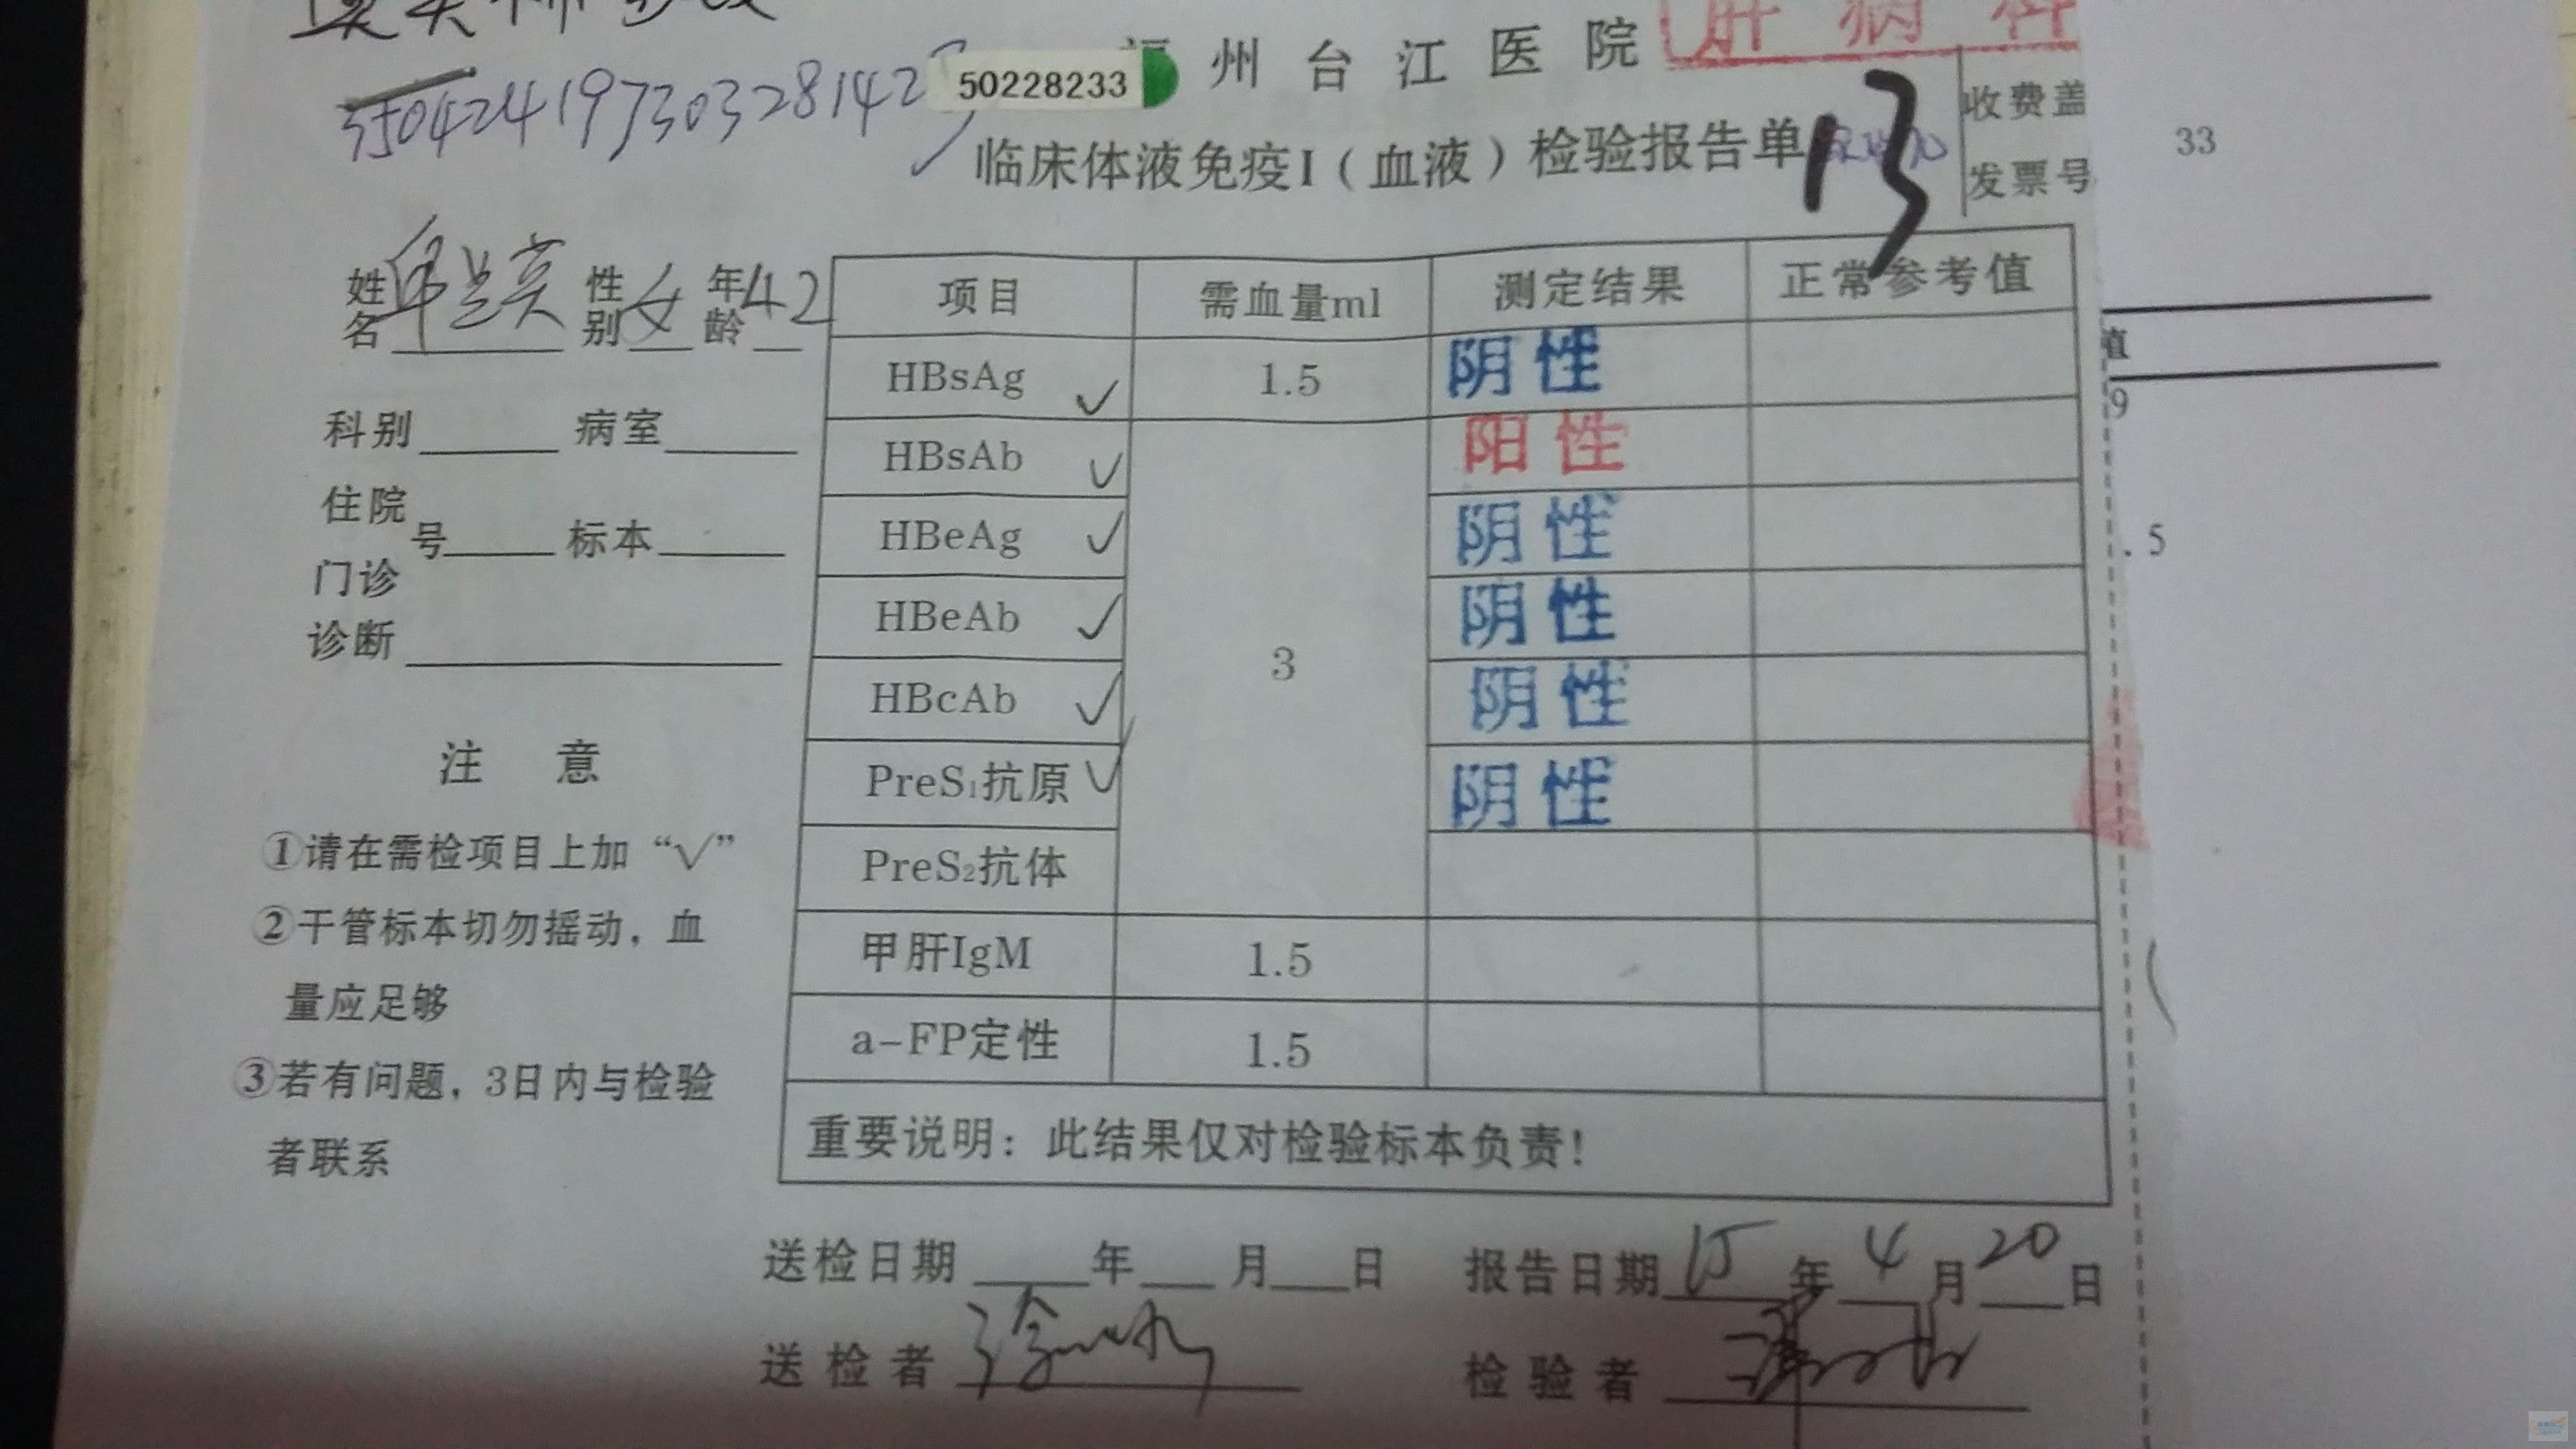 50228233
州台江医院
肝病科
临床体液免疫I（血液）检验报告单
13
收费盖
发票号
33
姓名 性别 女 年龄 42
科别 病室
住院
号 标本
门诊
诊断
注 意
①请在需检项目上加“√”
②干管标本切勿摇动，血
量应足够
③若有问题，3日内与检验
者联系
项目 需血量ml 测定结果 正常参考值
HBsAg ✓ 1.5 阴性
HBsAb ✓ 3 阳性
HBeAg ✓ 阴性
HBeAb ✓ 阴性
HBcAb ✓ 阴性
PreS₁抗原 ✓ 阴性
PreS₂抗体
甲肝IgM 1.5
a-FP定性 1.5
重要说明：此结果仅对检验标本负责！
送检日期 年 月 日 报告日期 15 年 4 月 20 日
送检者 检验者
值
9
.5